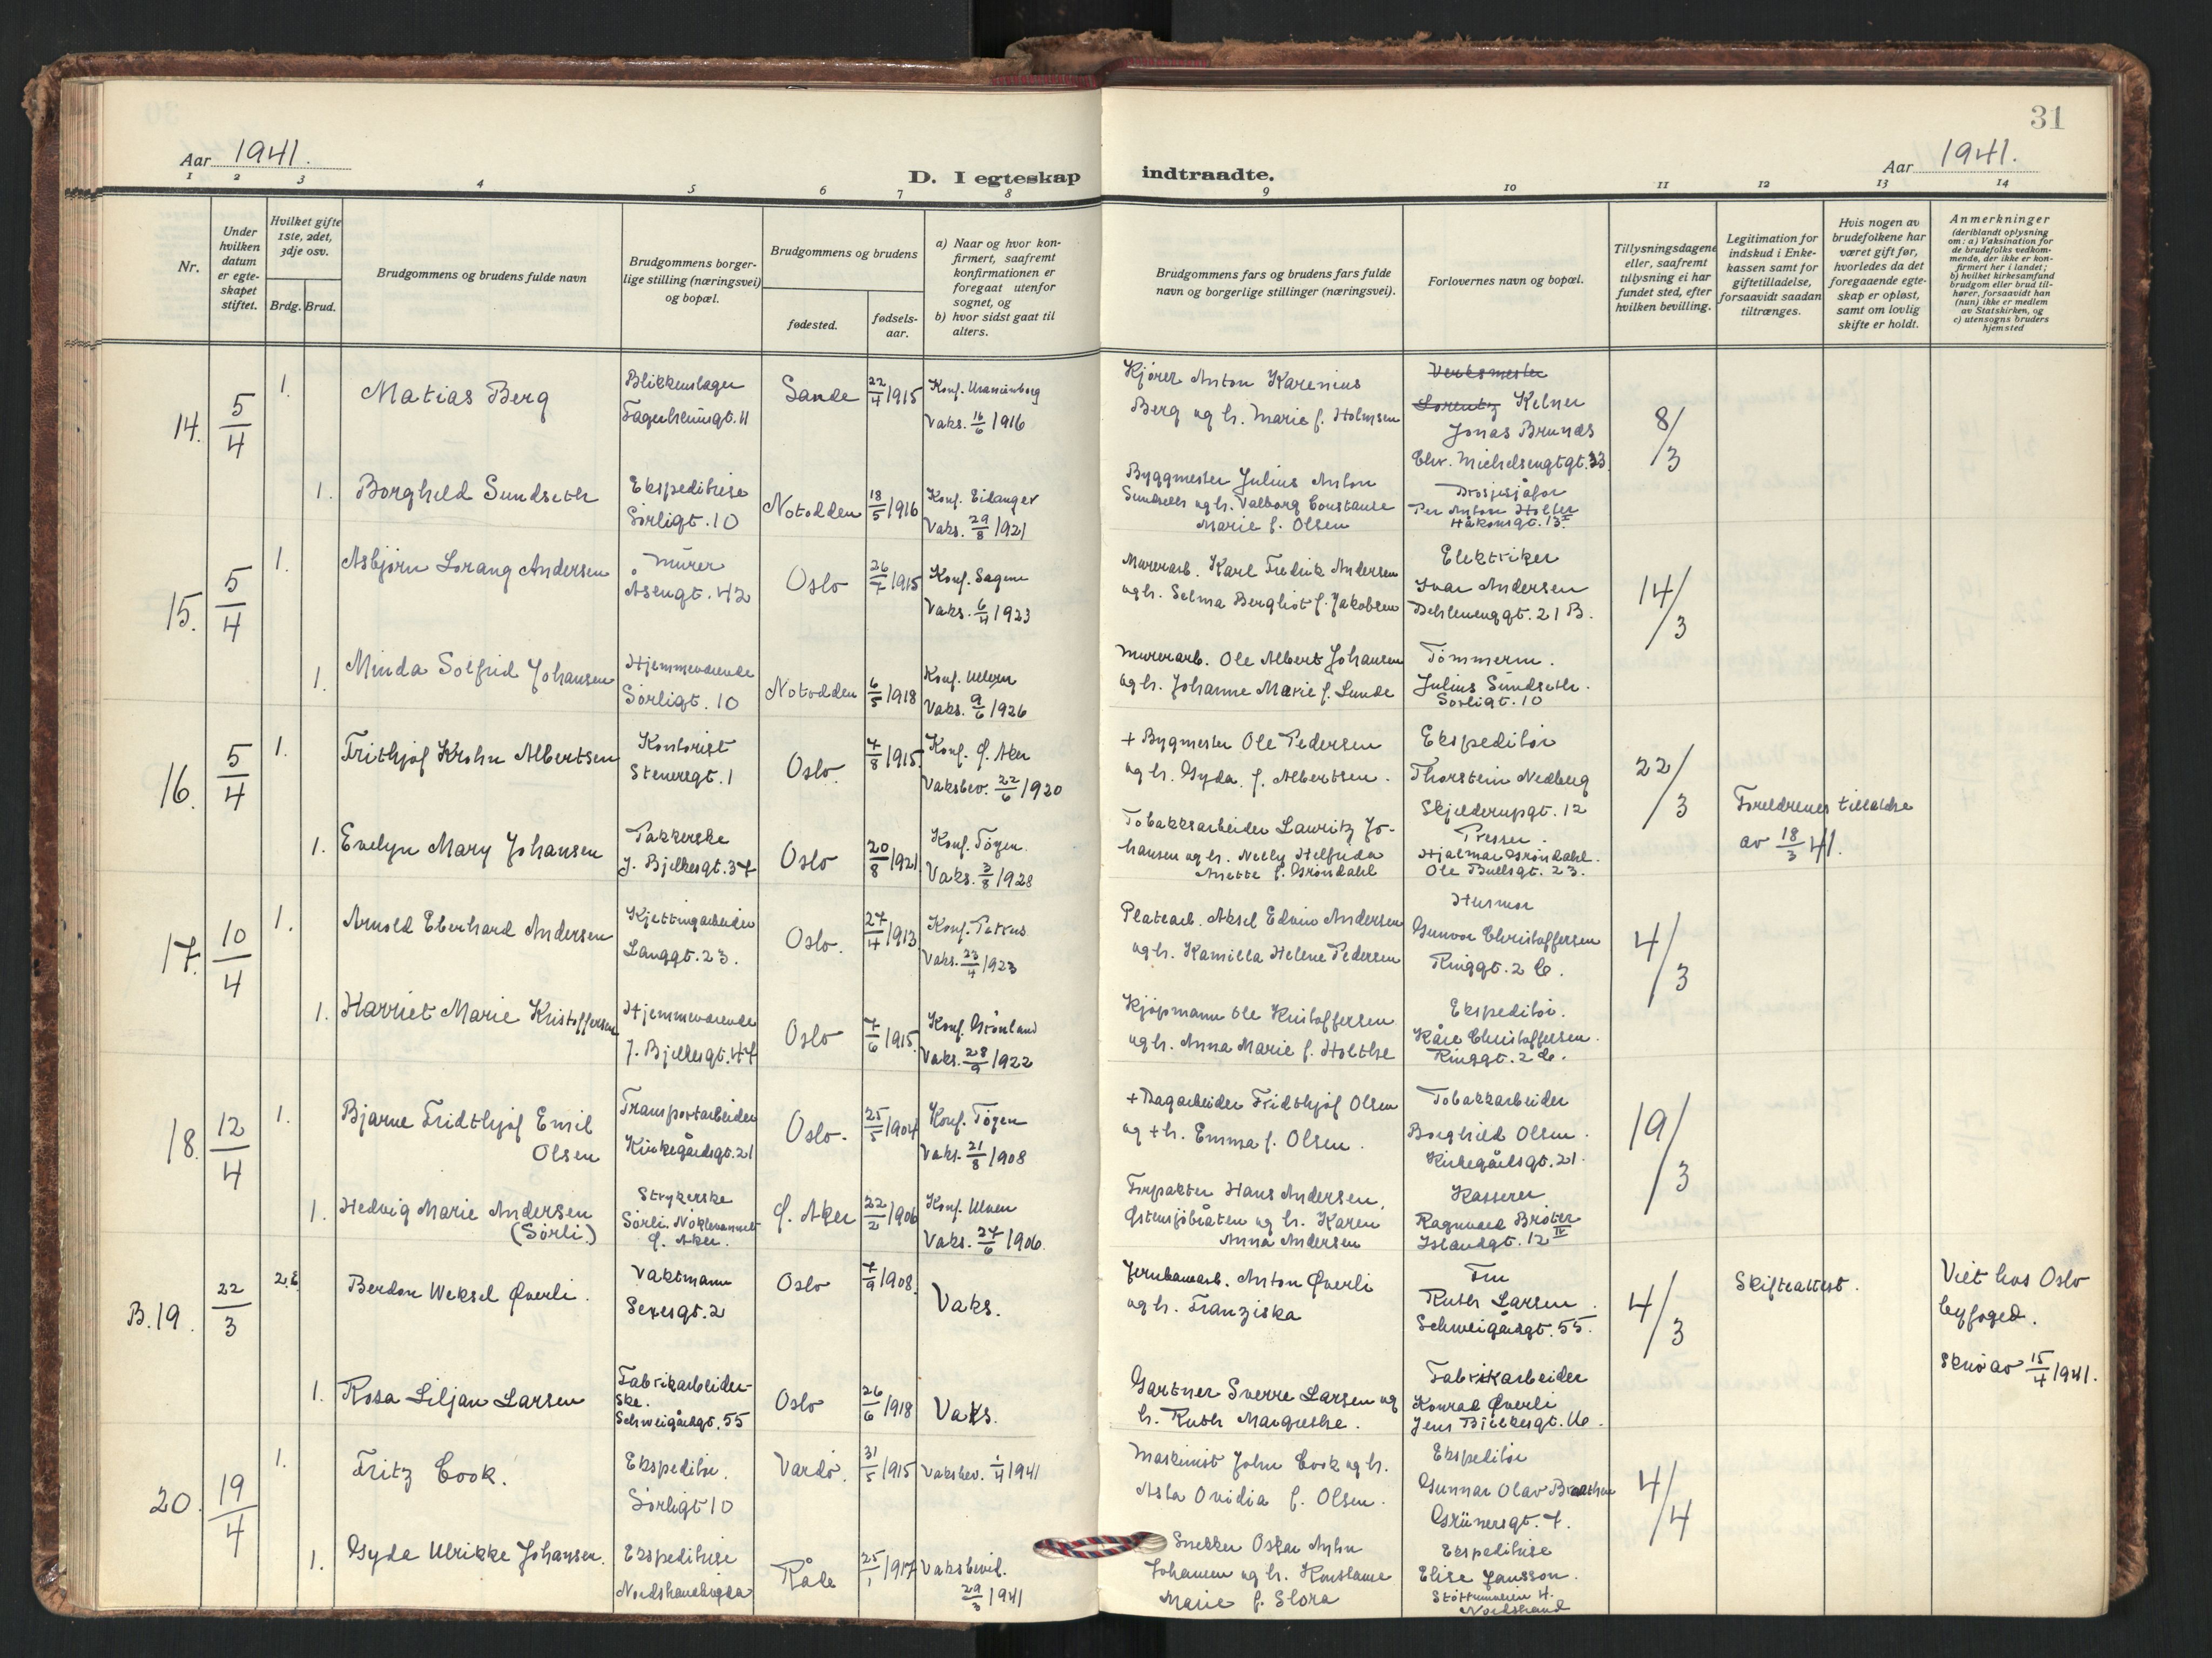 31
Aar 1941.
D. I egteskap indtraadte.
Aar 1941.
1 2 3 4 5 6 7 8 9 10 11 12 13 14
Nr.
Under hvilken datum er egteskapet stiftet.
Hvilket gifte 1ste, 2det, 3dje osv.
Brdg. Brud.
Brudgommens og brudens fulde navn
Brudgommens borgerlige stilling (næringsvei) og bopæl.
Brudgommens og brudens
fødested.
fødselsaar.
a) Naar og hvor konfirmert, saafremt konfirmationen er foregaat utenfor sognet, og
b) hvor sidst gaat til alters.
Brudgommens fars og brudens fars fulde navn og borgerlige stillinger (næringsvei).
Forlovernes navn og bopæl.
Tillysningsdagene eller, saafremt tillysning ei har fundet sted, efter hvilken bevilling.
Legitimation for indskud i Enkekassen samt for giftetilladelse, forsaavidt saadan tiltrænges.
Hvis nogen av brudefolkene har været gift før, hvorledes da det foregaaende egteskap er opløst, samt om lovlig skifte er holdt.
Anmerkninger (deriblandt oplysning om: a) Vaksination for de brudefolks vedkommende, der ikke er konfirmert her i landet; b) hvilket kirkesamfund brudgom eller brud tilhører, forsaavidt han (hun) ikke er medlem av Statskirken, og c) utensogns bruders hjemsted
14. 5/4 1. Matias Berg
Blikkenslager
Fagerheimgt. 11
Sande 22/4 1915
Konf. Uranienborg
Vaks. 16/6 1916
Kjører Anton Karenius
Berg og h. Marie f. Holmsen
Verksmester
Lorentz Kelner
Jonas Brunæs
Chr. Michelsensgt. 33
8/3
1. Borghild Sundseth
Ekspeditrise
Sørligt. 10
Notodden 18/5 1916
Konf. Eidanger
Vaks. 29/8 1921
Byggmester Julius Anton
Sundseth og h. Valborg Constanse
Marie f. Olsen
Drosjesjåfør
Per Anton Holter
Håkonsgt. 13 II
15. 5/4 1. Asbjørn Lorang Andersen
Murer
Åsengt. 42
Oslo 26/7 1915
Konf. Sagene
Vaks. 6/4 1923
Murerarb. Karl Fredrik Andersen
og h. Selma Bergliot f. Jakobsen
Elektriker
Ivar Andersen
Dehlenenggt. 21 B.
14/3
1. Minda Solfrid Johansen
Hjemmeværende
Sørligt. 10
Notodden 6/5 1918
Konf. Ullern
Vaks. 9/6 1926
Murerarb. Ole Albert Johansen
og h. Johanne Marie f. Lunde
Tømmerm.
Julius Sundseth.
Sørligt. 10
16. 5/4 1. Frithjof Krohn Albertsen
Kontorist
Stenersgt. 1
Oslo. 7/8 1915
Konf. Ø. Aker
Vaksbev. 22/6 1920
+ Bygmester Ole Pedersen
og h. Gyda f. Albertsen.
Ekspeditør
Thorstein Nedberg
Skjelderupgt. 12
22/3
Foreldrenes tillatelse
av 18/3 41.
1. Evelyn Mary Johansen
Pakkerske
J. Bjelkesgt. 37
Oslo 20/8 1921
Konf. Tøyen.
Vaks. 3/8 1928
Tobakksarbeider Lauritz Johansen
og h. Nelly Helfrida
Anette f. Grøndahl
Presser.
Hjalmar Grøndahl.
Ole Bullsgt. 23.
17. 10/4 1. Arnold Eberhard Andersen
Kjettingarbeider
Langgt. 23.
Oslo. 27/4 1913
Konf. Petrus
Vaks. 23/4 1923
Platearb. Aksel Edvin Andersen
og h. Kamilla Helene Pedersen
Husmor
Gunvor Christoffersen
Ringgt. 2 C.
4/3
1. Harriet Marie Kristoffersen
Hjemmeværende
J. Bjelkesgt. 47
Oslo 7/6 1915
Konf. Grønland
Vaks. 28/9 1922
Kjøpmann Ole Kristoffersen
og h. Anna Marie f. Holthe
Ekspeditør.
Kåre Christoffersen.
Ringgt. 2 C.
18. 12/4 1. Bjarne Fridthjof Emil
Olsen
Transportarbeider
Kirkegårdsgt. 21
Oslo. 25/5 1904
Konf. Tøyen
Vaks. 21/8 1908
+ Dagarbeider Fridthjof Olsen
og + h. Emma f. Olsen.
Tobakkarbeider
Borghild Olsen.
Kirkegårdsgt. 21.
19/3
1. Hedvig Marie Andersen
(Sørli)
Strykerske
Sørli. Nøklevannet
Ø. Aker.
Ø. Aker 22/2 1906
Konf. Ulven
Vaks. 27/6 1906.
Forpakter Hans Andersen,
Østensjøbråten og h. Karen
Anna Andersen
Kasserer
Ragnvald Bråter
Islandgt. 12 IV
B. 19. 22/3 2. Berdon Weksel Øverli.
Vaktmann
Sexesgt. 2
Oslo 7/9 1908.
Vaks.
Jernbanearb. Anton Øverli
og h. Franziska
Fru
Ruth Larsen.
Schweigårdsgt. 55.
4/3
Skifteattest.
Viet hos Oslo
byfoged.
Skriv av 15/4 1941.
1. Rosa Liljan Larsen
Fabrikarbeiderske.
Schweigårdsgt. 55
Oslo 26/6 1918
Vaks.
Gartner Sverre Larsen og
h. Ruth Margrethe.
Fabrikkarbeider
Konrad Øverli
Jens Bjelkesgt. 16.
20. 19/4 1. Fritz Cook.
Ekspeditør.
Sørligt 10
Vardø. 31/5 1915
Vaksbev. 1/4 1941
Maskinist John Cook og h.
Asta Ovidia f. Olsen.
Ekspeditør
Gunnar Olav Braathen
Grünersgt. 7.
4/4
1. Gyda Ulrikke Johansen.
Ekspeditrise
Nordstrandhøgda
Råde 25/1 1917
Vaksbevil.
29/3 1941
Snekker Oskar Anton
Johansen og h. Konstanse
Marie f. Slora
Ekspeditrise
Elise Jansson.
Nordstrand